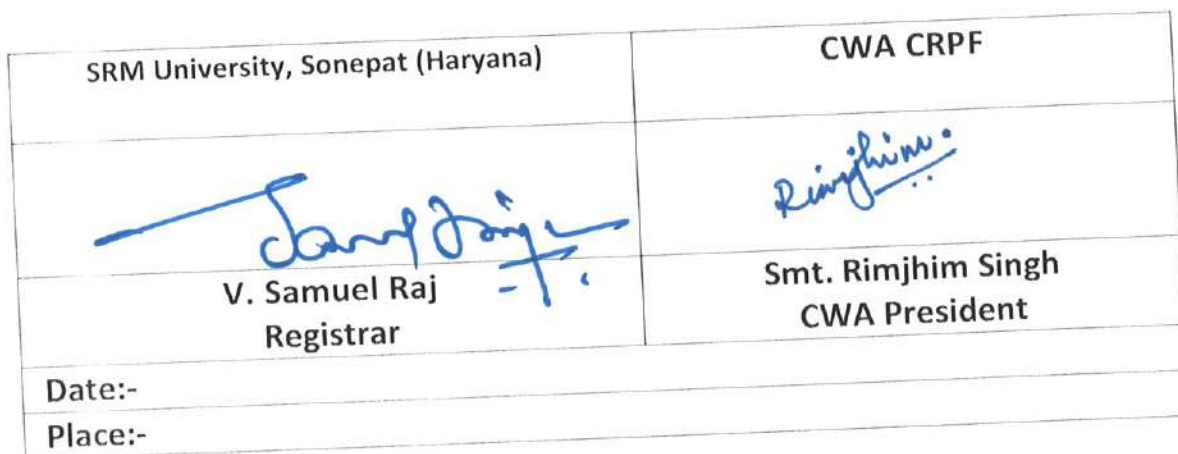 SRM University, Sonepat (Haryana)
CWA CRPF
Rimjhim.
V. Samuel Raj
Registrar
Smt. Rimjhim Singh
CWA President
Date:-
Place:-